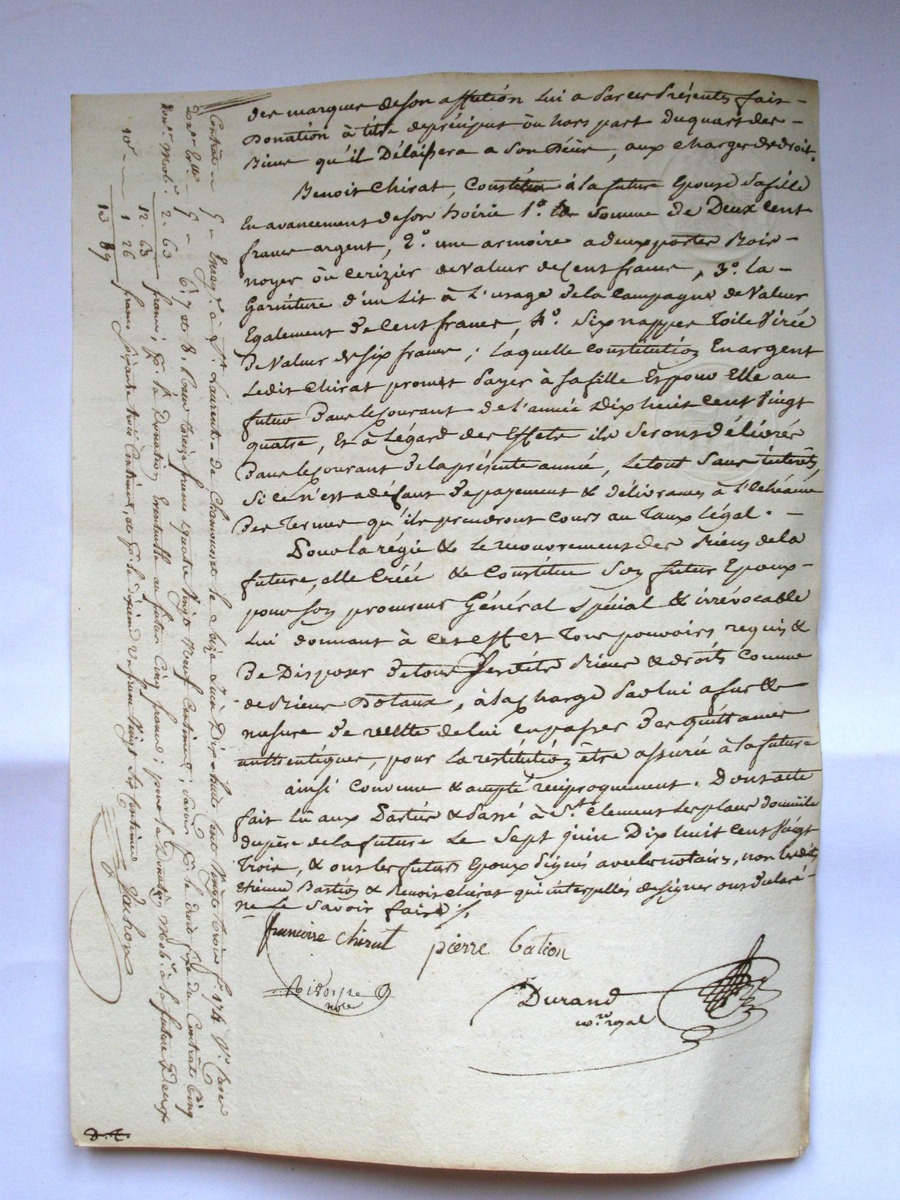 des marques de son affection lui a par ces présentes fait
Donation à titre de préciput ou hors part du quart des
Biens qu'il Délaissera a son Décès, aux charges de droit.
Benoit Chirat, Constitue à la future Epouse sa fille
En avancement de son hoirie 1.º la somme de Deux cent
francs argent, 2.º une armoire a deux portes Bois
noyer ou cerizier de valeur de Cent francs, 3.º la
Garniture d'un Lit à l'usage de la Campagne de valeur
Egalement de Cent francs, 4.º Six nappes Toile
De valeur de six francs; laquelle constitution En argent
Ledit Chirat promet payer à sa fille Et pour Elle au
futur Dans le courant de l'année Dix huit Cent Vingt
quatre, Et à Légard des Effets ils seront délivrés
Dans le courant de la présente année, Le tout sans intérêts,
Si ce n'est a défaut de payement & délivrance à l'Echéance
Des Termes qu'ils prendront cours au Taux légal.
Pour la régie & le recouvrement des Biens de la
future, elle Créé & Constitue son futur Epoux
pour son procureur Général spécial & irrévocable
Lui donnant à cet effet Tous pouvoirs requis &
De Disposer de tous Biens & droits Comme
de Biens Dotaux, à la charge par lui a fur &
mesure de recette de lui en passer Des quittances
authentiques, pour la restitution être assurée à la future
ainsi convenu & accepté réciproquement. Dont acte
fait lu aux parties & passé à St. Clément les places domicile
du père de la future Le Sept juin Dix huit Cent Vingt
Trois, & ont les futurs Epoux signés avec les notaires, non lesdits
Etienne & Benoit Chirat qui interpellés de signer ont déclaré
ne le savoir faire
françoise Chirat
pierre
nore
Durand
no.re royal
Contrat 5 " Enreg.é à St. Laurent de Chamousset le Seize Juin Dix-huit cent vingt trois
6, 7 et 8, Reçu Treize francs quatre vingt Neuf Centimes, Savoir p.r le droit fixe du Contrat Cinq
Don.on Mob.e 2. 63 francs; p.r la Donation Eventuelle au futur Cinq francs; pour la Donation Mob.e à la future Deux
12. 63 francs soixante trois Centimes, et p.r le dixième un franc Vingt six Centimes
10.e 1 26
13 89
D.T.